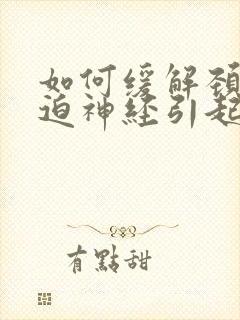 如何缓解颈
迫神经引起
有點甜